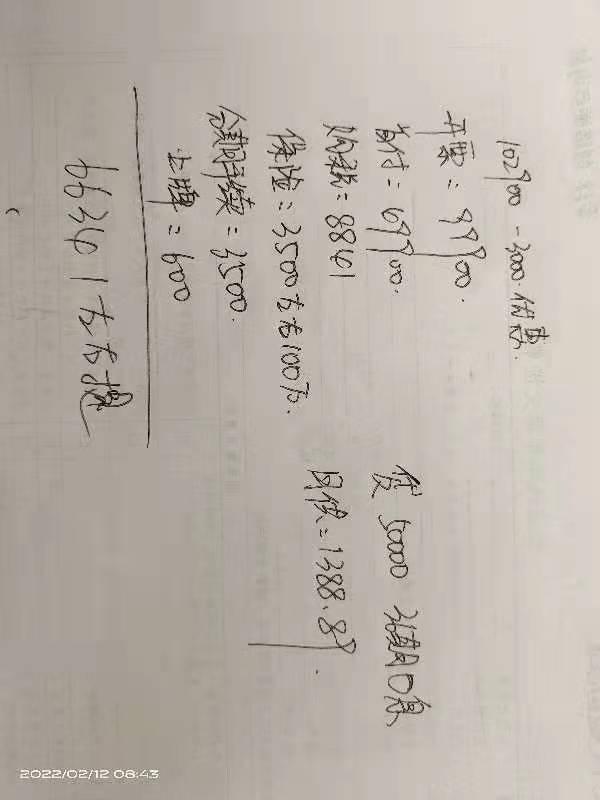 102900 -3000.优惠.
开票: 99900.
首付= 49900.
购税= 8841
保险= 3500左右100万.
金融手续= 3500.
上牌= 600
66341左右提
贷 50000 36期0息
月供=1388.89.
2022/02/12 08:43